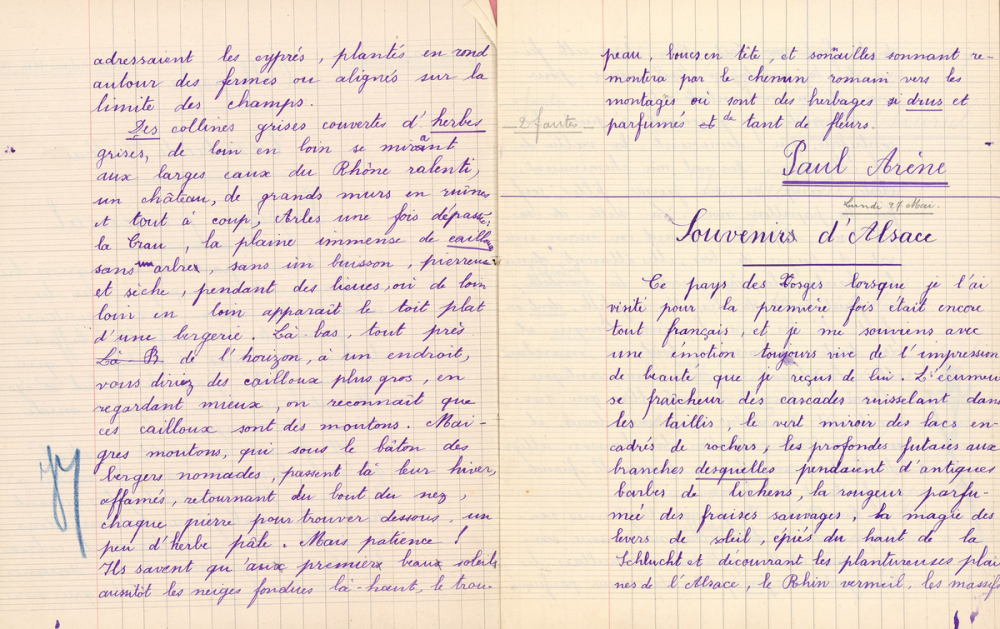 adressaient les cyprés, plantés en rond
autour des fermes ou alignés sur la
limite des champs.
Des collines grises couvertes d'herbes
grises, de loin en loin se mirant
aux larges eaux du Rhône ralenti,
un château, de grands murs en ruines
et tout à coup, Arles une fois dépassé,
la Crau, la plaine immense de cailloux
sans un arbre, sans un buisson, pierreuse
et sèche, pendant des lieues, où de loin
loin en loin apparaît le toit plat
d'une bergerie. Là-bas, tout près
Là B de l'horizon, à un endroit,
vous diriez des cailloux plus gros, en
regardant mieux, on reconnaît que
ces cailloux sont des moutons. Mai-
gres moutons, qui sous le bâton des
bergers nomades, passent là leur hiver,
affamés, retournant du bout du nez,
chaque pierre pour trouver dessous, un
peu d'herbe pâle. Mais patience!
Ils savent qu'aux premiers beaux soleils
aussitôt les neiges fondues là-haut, le trou-
peau, boucs en tête, et sonnailles sonnant re-
montera par le chemin romain vers les
montages où sont des herbages si drus et
2 fautes
parfumés et de tant de fleurs.
Paul Arène
Lundi 27 Mai.
Souvenirs d'Alsace
Ce pays des Vosges lorsque je l'ai
visité pour la première fois était encore
tout français, et je me souviens avec
une émotion toujours vive de l'impression
de beauté que je reçus de lui. L'écumeu
se fraîcheur des cascades ruisselant dans
les taillis, le vert miroir des lacs en-
cadrés de rochers, les profondes futaies aux
branches desquelles pendaient d'antiques
barbes de lichens, la rougeur parfu-
mée des fraises sauvages, la magie des
levers de soleil, épiés du haut de la
Schlucht et découvrant les plantureuses plai
nes de l'Alsace, le Rhin vermeil, les massifs